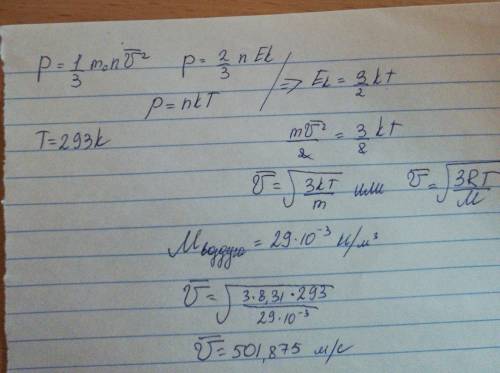 p = 1/3 m₀ n v̅² p = 2/3 n Ek
p = nkT / => Ek = 3/2 kt
T = 293k
mv̅²/2 = 3/2 kt
v̅ = √(3kT/m) или v̅ = √(3RT/M)
Mвоздуха = 29·10⁻³ К/м³
v̅ = √(3·8,31·293/29·10⁻³)
v̅ = 501,875 м/с